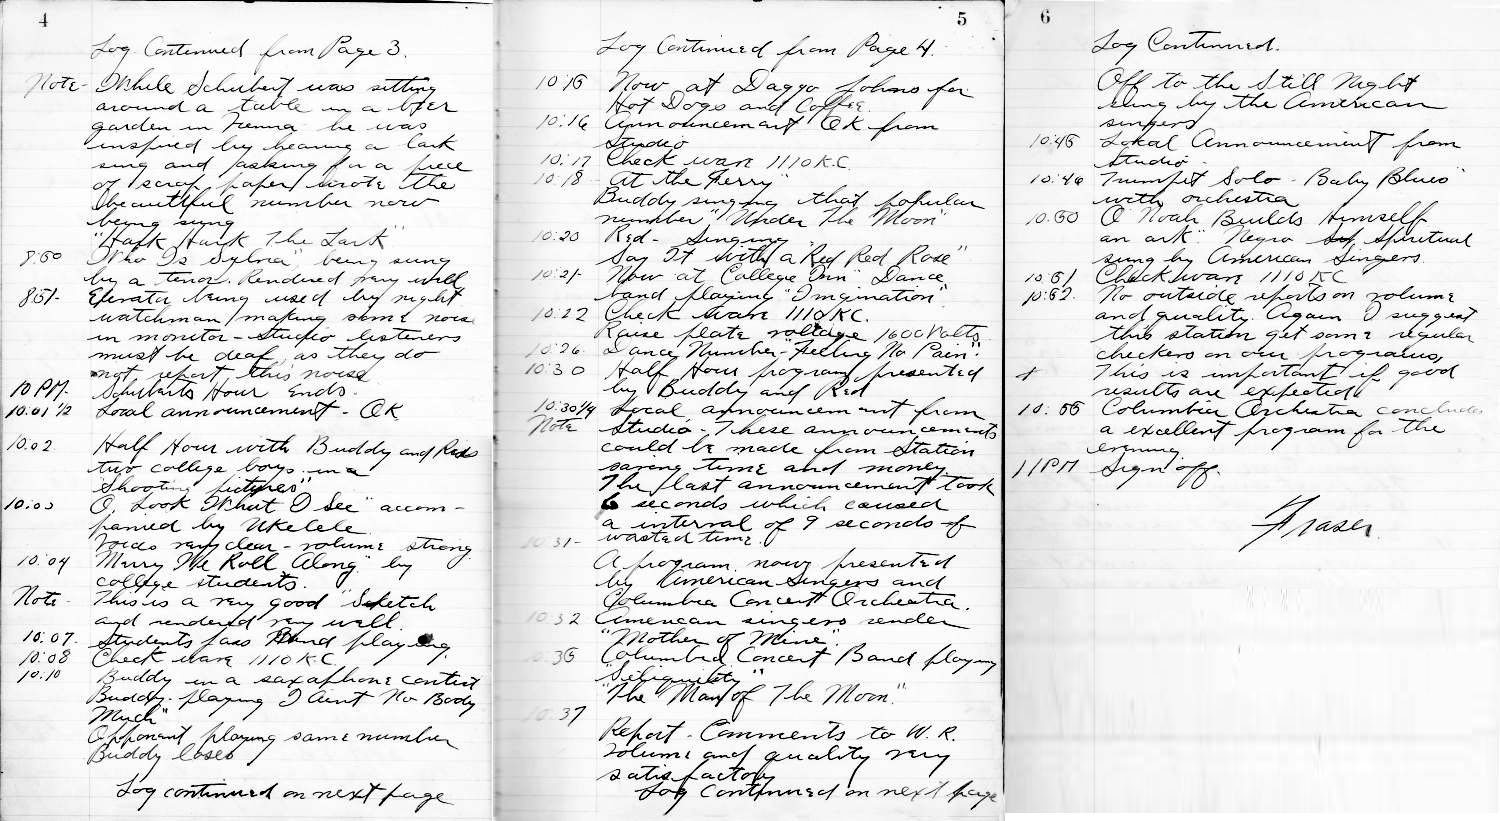 4
Log Continued from Page 3.
Note- While Schubert was sitting
around a table in a beer
garden in Vienna he was
inspired by hearing a lark
sing and asking for a piece
of scrap paper wrote the
beautiful number now
being sung
"Hark Hark The Lark"
8:50 "Who Is Sylvia" being sung
by a tenor. Rendered very well
8:51- Elevator being used by night
watchman making some noise
in monitor - studio listeners
must be deaf, as they do
not report this noise
10 PM. Schuberts Hour Ends.
10:01 1/2 Local announcement - OK
10:02 Half Hour with Buddy and Reds
two college boys in a
"Shooting pictures"
10:03 O, Look What I See" accom-
panied by Ukelele
Voices very clear - volume strong
10:04 Merry We Roll Along" by
college students.
Note- This is a very good "Sketch
and rendered very well.
10:07. Students Jass Band playing.
10:08 Check wave 1110 K.C.
10:10 Buddy in a saxaphone contest
Buddy- playing I Aint No Body
Much"
Opponent playing same number
Buddy loses
Log continued on next page
5
Log Continued from Page 4.
10:15 Now at Daggo Johns for
Hot Dogs and Coffee.
10:16 Announcement OK from
Studio
10:17 Check wave 1110 K.C.
10:18- At the Ferry"
Buddy singing that popular
number "Under The Moon"
10:20 Red- Singing
Say It with a Red Red Rose"
10:21- Now at College Inn" Dance
band playing "Imgination"
10:22 Check Wave 1110 K.C.
Raise plate voltage 1600 Volts
10:26 Dance Number- "Feeling No Pain".
10:30 Half Hour program presented
by Buddy and Red
10:30 1/4 Local announcement from
Note Studio- These announcements
could be made from Station
saving time and money
The last announcement took
6 seconds which caused
a interval of 9 seconds of
10:31- wasted time.
A program now presented
by American Singers and
Columbia Concert Orchestra.
10:32 American singers render
"Mother of Mine".
10:35 Columbia Concert Band playing
"The "Man of The Moon".
10:37
Report- Comments to W. R.
Volume and quality very
satisfactory
Log continued on next page
6
Log Continued.
Off to the Still Night
sung by the American
singers
10:45 Local Announcement from
studio.
10:46 Trumpet Solo - Baby Blues"
with orchestra
10:50 O' Noah Builds Himself
an ark" Negro Spiritual
sung by American Singers.
10:51 Check wave 1110 K.C
10:52. No outside reports on volume
and quality. Again I suggest
this station get some regular
checkers on our programs,
+ This is important if good
results are expected.
10:55 Columbia Orchestra concludes
a excellent program for the
evening
11 PM Sign off.
Fraser.